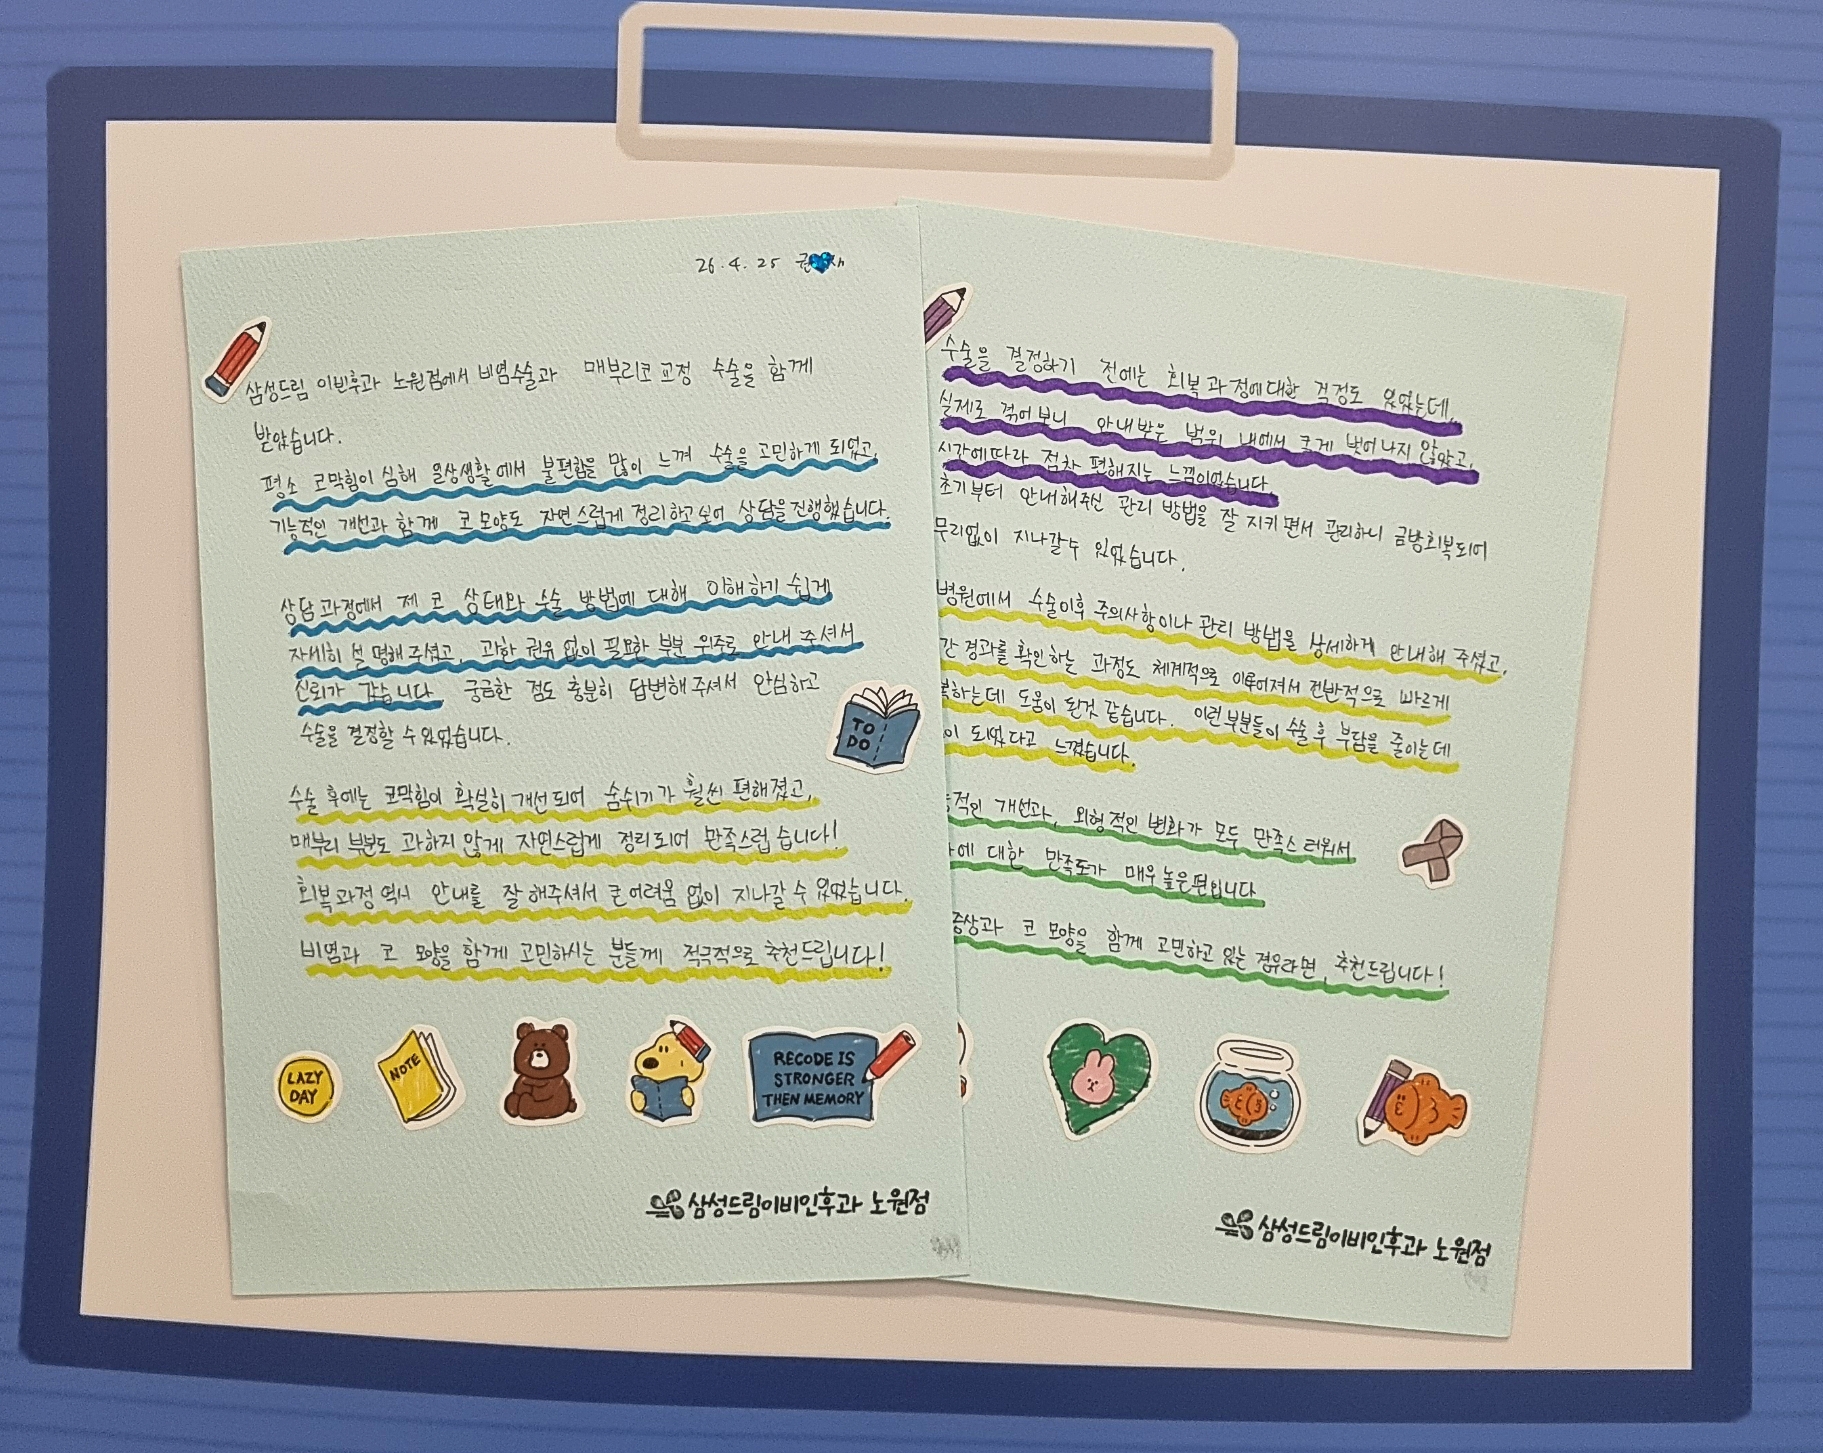 26.4.25
삼성드림 이빈후과 노원점에서 비염수술과 매부리코 교정 수술을 함께
받았습니다.
평소 코막힘이 심해 일상생활에서 불편함을 많이 느껴 수술을 고민하게 되었고,
기능적인 개선과 함께 코 모양도 자연스럽게 정리하고 싶어 상담을 진행했습니다.
상담 과정에서 제 코 상태와 수술 방법에 대해 이해하기 쉽게
자세히 설명해 주셨고, 과한 권유 없이 필요한 부분 위주로 안내 주셔서
신뢰가 갔습니다 궁금한 점도 충분히 답변해 주셔서 안심하고
수술을 결정할 수 있었습니다.
TO
DO
수술 후에는 코막힘이 확실히 개선되어 숨쉬기가 훨씬 편해졌고,
매부리 부분도 과하지 않게 자연스럽게 정리되어 만족스럽습니다!
회복 과정 역시 안내를 잘 해주셔서 큰 어려움 없이 지나갈 수 있었습니다.
비염과 코 모양을 함께 고민하시는 분들께 적극적으로 추천드립니다!
LAZY
DAY
NOTE
RECODE IS
STRONGER
THEN MEMORY
삼성드림이비인후과 노원점
수술을 결정하기 전에는 회복 과정에 대한 걱정도 있었는데,
실제로 겪어보니 안내받은 범위 내에서 크게 벗어나지 않았고,
시간에 따라 점차 편해지는 느낌이었습니다
초기부터 안내해주신 관리 방법을 잘 지키면서 관리하니 금방회복되어
무리없이 지나갈수 있었습니다.
병원에서 수술이후 주의사항이나 관리 방법을 상세하게 안내해 주셨고,
간 경과를 확인하는 과정도 체계적으로 이루어져서 전반적으로 빠르게
복하는데 도움이 된것 같습니다. 이런 부분들이 수술 후 부담을 줄이는데
이 되었다고 느꼈습니다.
적인 개선과, 외형적인 변화가 모두 만족스러워서
에 대한 만족도가 매우 높은편입니다
증상과 코 모양을 함께 고민하고 있는 경우라면, 추천드립니다!
삼성드림이비인후과 노원점